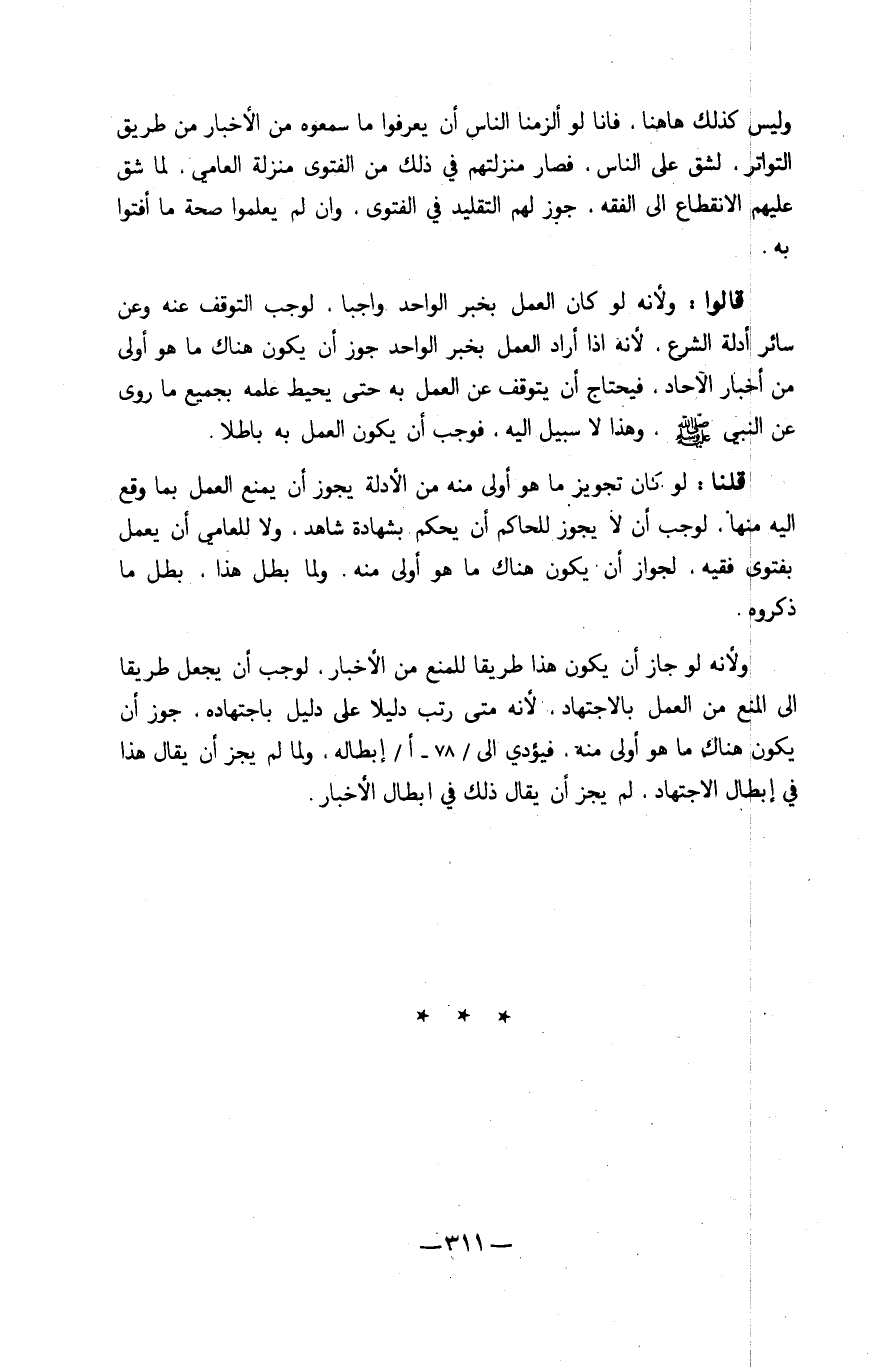 وليس كذلك هاهنا ، فانا لو ألزمنا الناس أن يعرفوا ما سمعوه من الأخبار من طريق
التواتر ، لشق على الناس ، فصار منزلتهم في ذلك من الفتوى منزلة العامي ، لما شق
عليهم الانقطاع الى الفقه ، جوز لهم التقليد في الفتوى ، وان لم يعلموا صحة ما أفتوا
به .
قالوا : ولأنه لو كان العمل بخبر الواحد واجبا ، لوجب التوقف عنه وعن
سائر أدلة الشرع ، لأنه اذا أراد العمل بخبر الواحد جوز أن يكون هناك ما هو أولى
من أخبار الآحاد ، فيحتاج أن يتوقف عن العمل به حتى يحيط علمه بجميع ما روى
عن النبي ﷺ ، وهذا لا سبيل اليه ، فوجب أن يكون العمل به باطلا .
قلنا : لو كان تجويز ما هو أولى منه من الأدلة يجوز أن يمنع العمل بما وقع
اليه منها ، لوجب أن لا يجوز للحاكم أن يحكم بشهادة شاهد ، ولا للعامي أن يعمل
بفتوى فقيه ، لجواز أن يكون هناك ما هو أولى منه . ولما بطل هذا ، بطل ما
ذكروه .
ولأنه لو جاز أن يكون هذا طريقا للمنع من الأخبار ، لوجب أن يجعل طريقا
الى المنع من العمل بالاجتهاد ، لأنه متى رتب دليلا على دليل باجتهاده ، جوز أن
يكون هناك ما هو أولى منه ، فيؤدي الى / ٧٨ ـ أ / إبطاله ، ولما لم يجز أن يقال هذا
في إبطال الاجتهاد ، لم يجز أن يقال ذلك في ابطال الأخبار .
* * *
— ٣١١ —